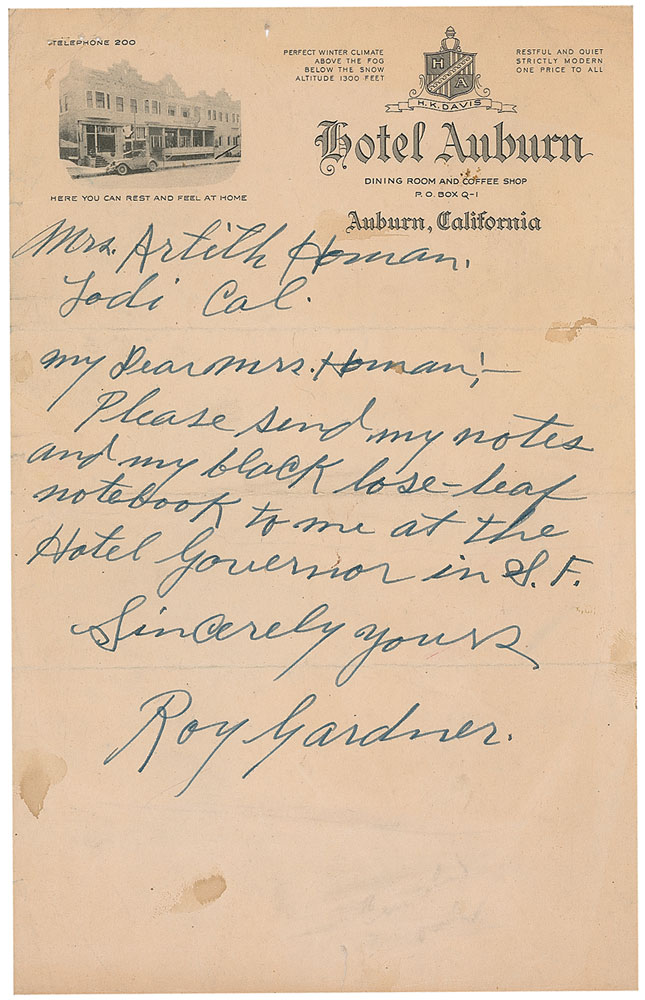 TELEPHONE 200
PERFECT WINTER CLIMATE
ABOVE THE FOG
BELOW THE SNOW
ALTITUDE 1300 FEET
H A
H.K. DAVIS
RESTFUL AND QUIET
STRICTLY MODERN
ONE PRICE TO ALL
HERE YOU CAN REST AND FEEL AT HOME
Hotel Auburn
DINING ROOM AND COFFEE SHOP
P.O. BOX Q-1
Auburn, California
Mrs. Artith Homan.
Lodi Cal.
My Dear Mrs. Homan;—
Please send my notes
and my black lose-leaf
notebook to me at the
Hotel Governor in S. F.
Sincerely yours
Roy Gardner.